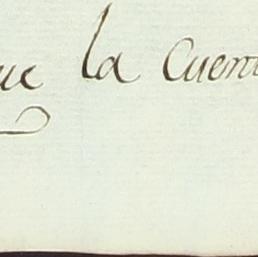 ue la Cuent